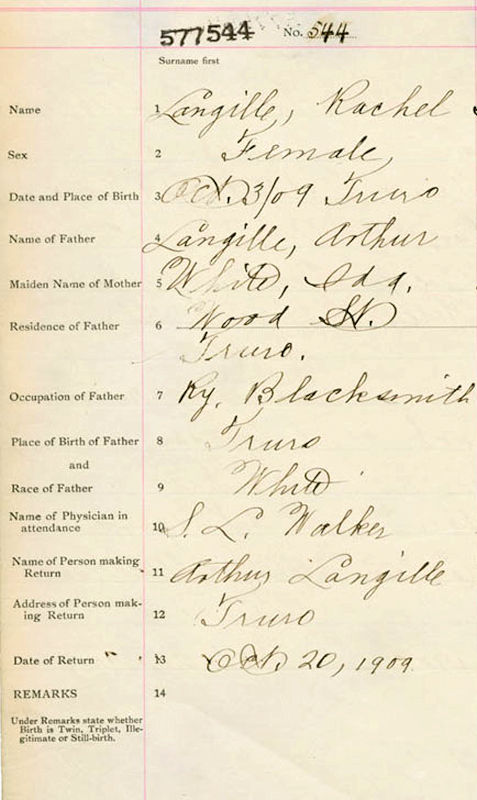 577544 No. 544
Surname first
Name 1 Langille, Rachel
Sex 2 Female,
Date and Place of Birth 3 Oct. 3/09 Truro
Name of Father 4 Langille, Arthur
Maiden Name of Mother 5 White, Ida.
Residence of Father 6 Wood St.
Truro.
Occupation of Father 7 Ry. Blacksmith
Place of Birth of Father 8 Truro
and
Race of Father 9 White
Name of Physician in
attendance 10 S. L. Walker
Name of Person making
Return 11 Arthur Langille
Address of Person mak-
ing Return 12 Truro
Date of Return 13 Oct. 20, 1909
REMARKS 14
Under Remarks state whether
Birth is Twin, Triplet, Ille-
gitimate or Still-birth.